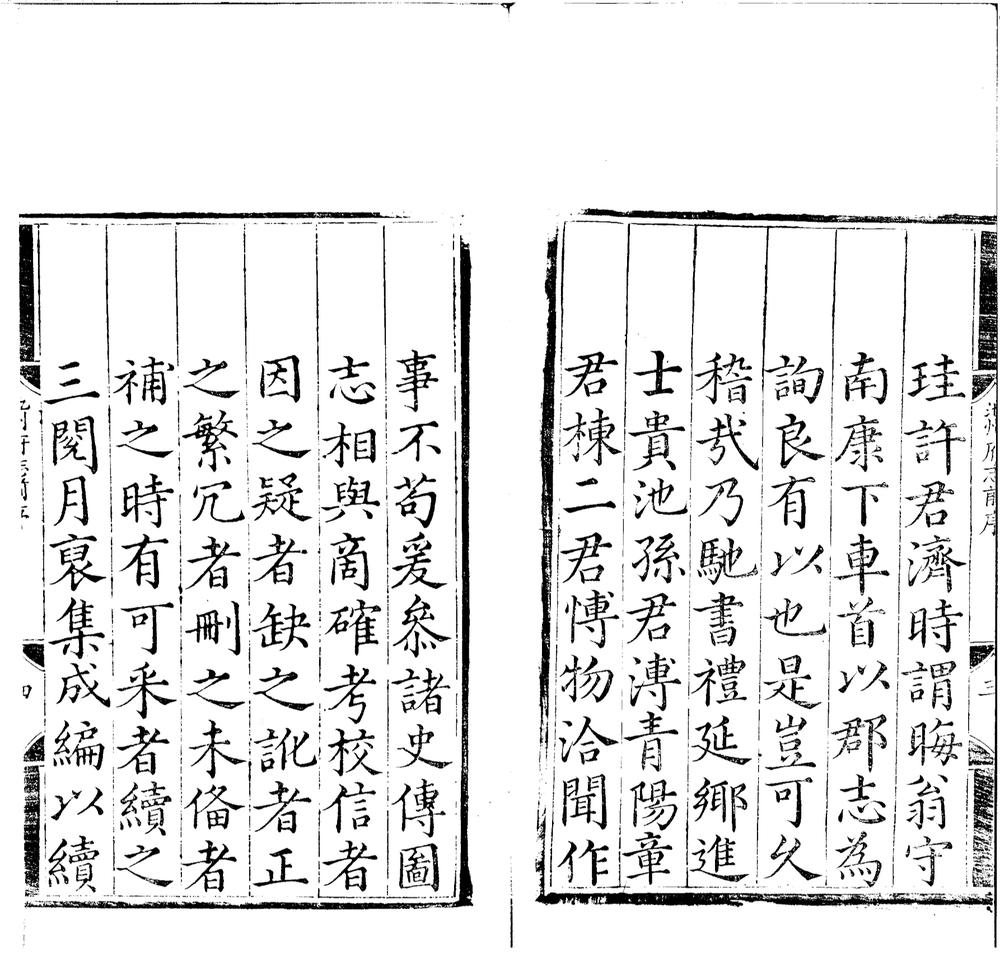 珪許君濟時謂晦翁守
南康下車首以郡志為
詢良有以也是豈可久
稽㢤乃馳書禮延鄉進
士貴池孫君溥青陽章
君棟二君愽物洽聞作
事不苟爰叅諸史傳圖
志相與啇確考校信者
因之疑者缺之訛者正
之繁冗者刪之未俻者
補之時有可采者續之
三閱月裒集成編以續
三
四